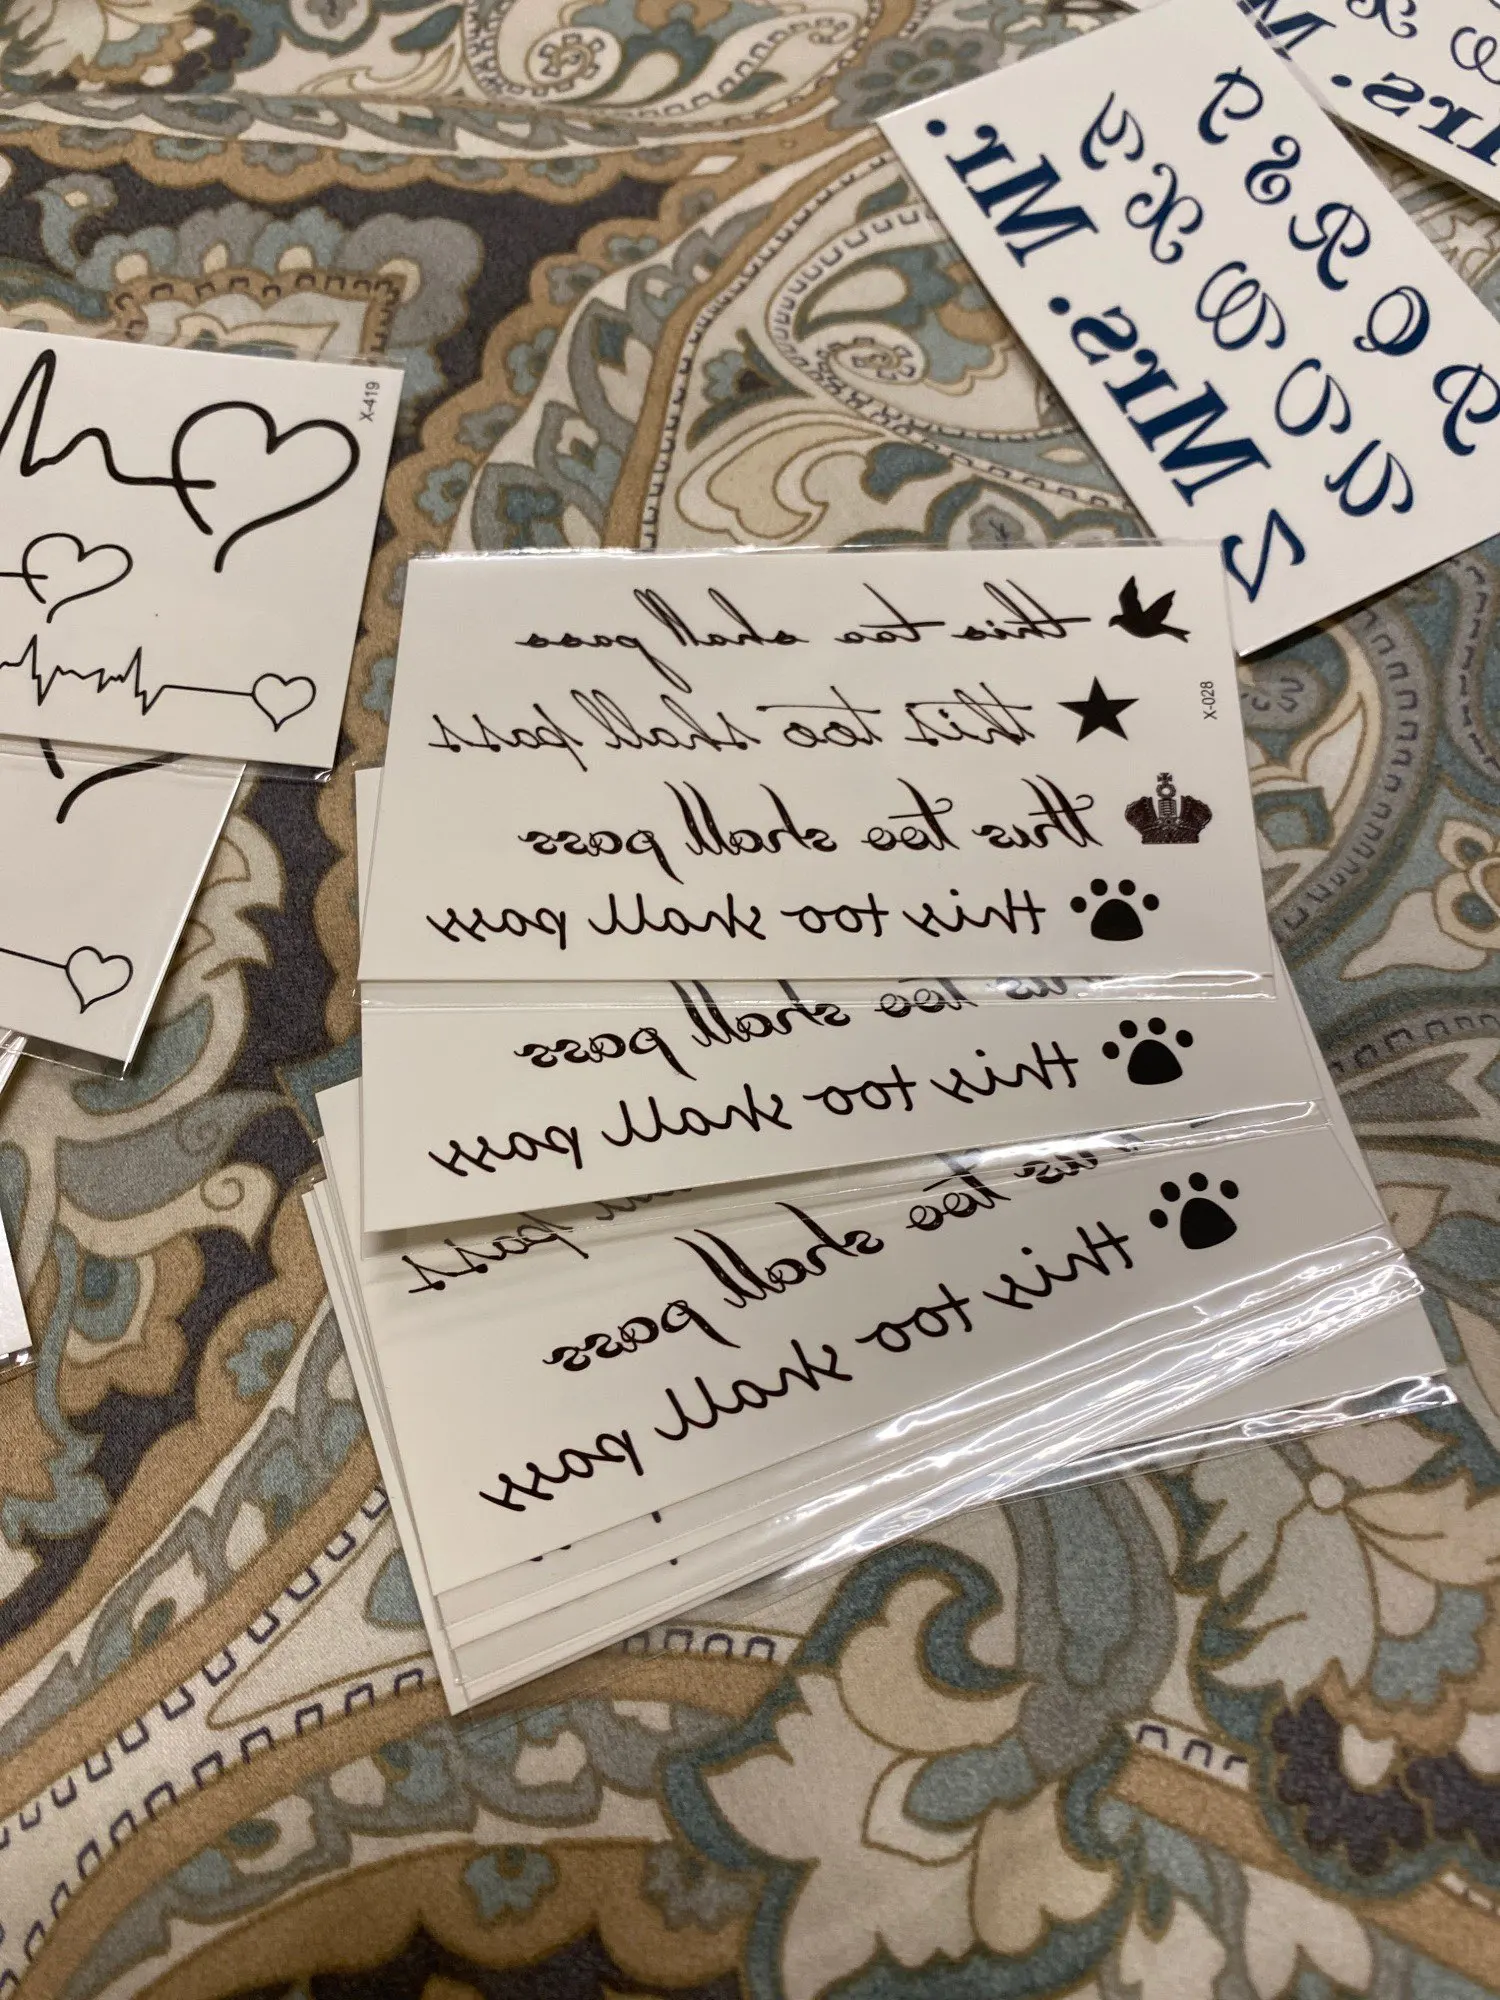 X-419
Mr.
Mrs.
Y X W V U
Z
Mrs.
X-028
this too shall pass
this too shall pass
this too shall pass
this too shall pass
too shall pass
this too shall pass
pass
too shall pass
this too shall pass